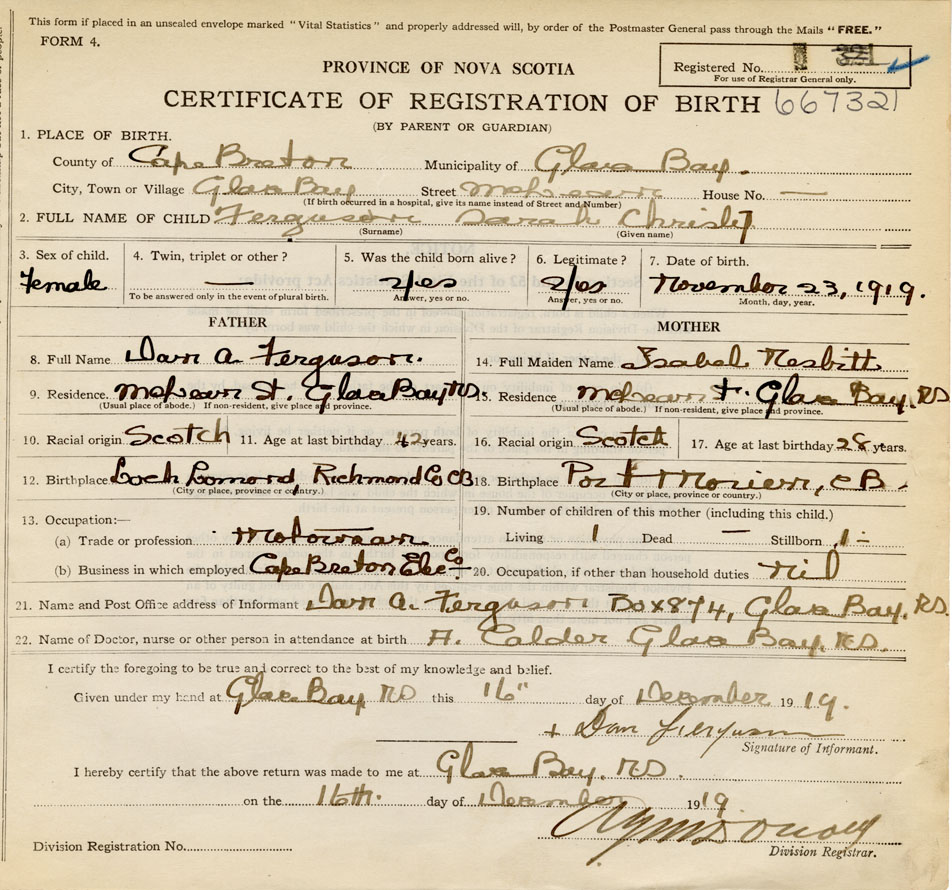 This form if placed in an unsealed envelope marked "Vital Statistics" and properly addressed will, by order of the Postmaster General pass through the Mails "FREE."
FORM 4.
Registered No. 321
For use of Registrar General only.
PROVINCE OF NOVA SCOTIA
CERTIFICATE OF REGISTRATION OF BIRTH 667321
(BY PARENT OR GUARDIAN)
1. PLACE OF BIRTH.
County of Cape Breton Municipality of Glace Bay.
City, Town or Village Glace Bay Street McLean House No. —
(If birth occurred in a hospital, give its name instead of Street and Number)
2. FULL NAME OF CHILD Ferguson Sarah Christy
(Surname) (Given name)
3. Sex of child. 4. Twin, triplet or other? 5. Was the child born alive? 6. Legitimate? 7. Date of birth.
Female — Yes Yes November 23, 1919.
To be answered only in the event of plural birth. Answer, yes or no. Answer, yes or no. Month, day, year.
FATHER MOTHER
8. Full Name Dan A. Ferguson. 14. Full Maiden Name Isabel Nesbitt
9. Residence. McLean St. Glace Bay NS. 15. Residence McLean St. Glace Bay, NS
(Usual place of abode.) If non-resident, give place and province. (Usual place of abode.) If non-resident, give place and province.
10. Racial origin Scotch 11. Age at last birthday 42 years. 16. Racial origin Scotch 17. Age at last birthday 28 years.
12. Birthplace Loch Lomond, Richmond Co CB 18. Birthplace Port Morien, CB.
(City or place, province or country.) (City or place, province or country.)
13. Occupation:— 19. Number of children of this mother (including this child.)
(a) Trade or profession. Motorman Living 1 Dead — Stillborn 1 -
(b) Business in which employed Cape Breton Elec Co 20. Occupation, if other than household duties nil
21. Name and Post Office address of Informant Dan A. Ferguson Box 874, Glace Bay. NS.
22. Name of Doctor, nurse or other person in attendance at birth A. Calder Glace Bay, NS.
I certify the foregoing to be true and correct to the best of my knowledge and belief.
Given under my hand at Glace Bay NS this 16" day of December 1919.
+ Dan Ferguson
Signature of Informant.
I hereby certify that the above return was made to me at Glace Bay, NS.
on the 16th. day of December 1919
Division Registration No. Division Registrar.